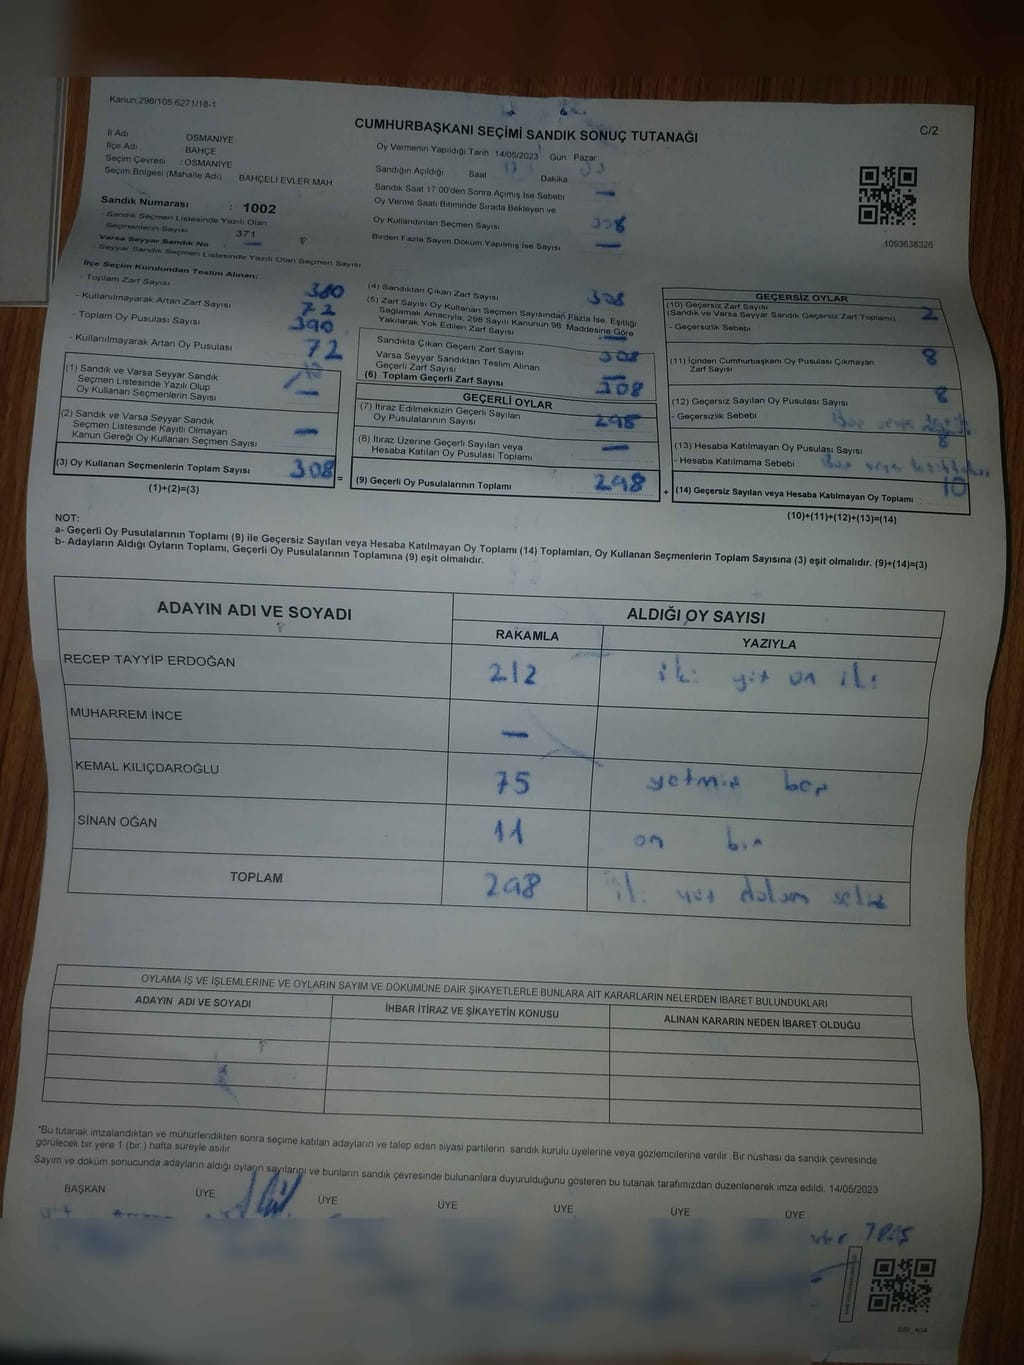 Kanun:298/105.6271/18-1
CUMHURBAŞKANI SEÇİMİ SANDIK SONUÇ TUTANAĞI
C/2
İl Adı OSMANİYE
İlçe Adı BAHÇE
Seçim Çevresi : OSMANİYE
Seçim Bölgesi (Mahalle Adı) BAHÇELİ EVLER MAH
Sandık Numarası : 1002
Sandık Seçmen Listesinde Yazılı Olan
Seçmenlerin Sayısı 371
Varsa Seyyar Sandık No —
Seyyar Sandık Seçmen Listesinde Yazılı Olan Seçmen Sayısı
Oy Vermenin Yapıldığı Tarih 14/05/2023 Gün Pazar
Sandığın Açıldığı Saat 17 Dakika
Sandık Saat 17 00'den Sonra Açımış İse Sebebi —
Oy Verme Saati Bitiminde Sırada Bekleyen ve
Oy Kullandırılan Seçmen Sayısı 308
Birden Fazla Sayım Döküm Yapılmış İse Sayısı —
1093638326
İlçe Seçim Kurulundan Teslim Alınan;
- Toplam Zarf Sayısı 380
- Kullanılmayarak Artan Zarf Sayısı 72
- Toplam Oy Pusulası Sayısı 390
- Kullanılmayarak Artan Oy Pusulası 72
(1) Sandık ve Varsa Seyyar Sandık
Seçmen Listesinde Yazılı Olup
Oy Kullanan Seçmenlerin Sayısı —
(2) Sandık ve Varsa Seyyar Sandık
Seçmen Listesinde Kayıtlı Olmayan
Kanun Gereği Oy Kullanan Seçmen Sayısı —
(3) Oy Kullanan Seçmenlerin Toplam Sayısı 308
(1)+(2)=(3)
(4) Sandıktan Çıkan Zarf Sayısı 308
(5) Zarf Sayısı Oy Kullanan Seçmen Sayısından Fazla İse, Eşitliği
Sağlamak Amacıyla, 298 Sayılı Kanunun 98. Maddesine Göre
Yakılarak Yok Edilen Zarf Sayısı —
Sandıkta Çıkan Geçerli Zarf Sayısı 308
Varsa Seyyar Sandıktan Teslim Alınan
Geçerli Zarf Sayısı —
(6) Toplam Geçerli Zarf Sayısı 308
GEÇERLİ OYLAR
(7) İtiraz Edilmeksizin Geçerli Sayılan
Oy Pusulalarının Sayısı 298
(8) İtiraz Üzerine Geçerli Sayılan veya
Hesaba Katılan Oy Pusulası Toplamı —
= (9) Geçerli Oy Pusulalarının Toplamı 298
GEÇERSİZ OYLAR
(10) Geçersiz Zarf Sayısı 2
(Sandık ve Varsa Seyyar Sandık Geçersiz Zarf Toplamı)
- Geçersizlik Sebebi
(11) İçinden Cumhurbaşkanı Oy Pusulası Çıkmayan 8
Zarf Sayısı
(12) Geçersiz Sayılan Oy Pusulası Sayısı 8
- Geçersizlik Sebebi
(13) Hesaba Katılmayan Oy Pusulası Sayısı 8
- Hesaba Katılmama Sebebi :
+ (14) Geçersiz Sayılan veya Hesaba Katılmayan Oy Toplamı 10
(10)+(11)+(12)+(13)=(14)
NOT:
a- Geçerli Oy Pusulalarının Toplamı (9) ile Geçersiz Sayılan veya Hesaba Katılmayan Oy Toplamı (14) Toplamları, Oy Kullanan Seçmenlerin Toplam Sayısına (3) eşit olmalıdır. (9)+(14)=(3)
b- Adayların Aldığı Oyların Toplamı, Geçerli Oy Pusulalarının Toplamına (9) eşit olmalıdır.
ADAYIN ADI VE SOYADI
ALDIĞI OY SAYISI
RAKAMLA YAZIYLA
RECEP TAYYİP ERDOĞAN 212 iki yüz on iki
MUHARREM İNCE —
KEMAL KILIÇDAROĞLU 75 yetmiş beş
SİNAN OĞAN 11 on bir
TOPLAM 298 iki yüz doksan sekiz
OYLAMA İŞ VE İŞLEMLERİNE VE OYLARIN SAYIM VE DÖKÜMÜNE DAİR ŞİKAYETLERLE BUNLARA AİT KARARLARIN NELERDEN İBARET BULUNDUKLARI
ADAYIN ADI VE SOYADI İHBAR İTİRAZ VE ŞİKAYETİN KONUSU ALINAN KARARIN NEDEN İBARET OLDUĞU
"Bu tutanak imzalandıktan ve mühürlendikten sonra seçime katılan adayların ve talep eden siyasi partilerin sandık kurulu üyelerine veya gözlemcilerine verilir Bir nüshası da sandık çevresinde
görülecek bir yere 1 (bir ) hafta süreyle asılır
Sayım ve döküm sonucunda adayların aldığı oyların sayılarını ve bunların sandık çevresinde bulunanlara duyurulduğunu gösteren bu tutanak tarafımızdan düzenlenerek imza edildi. 14/05/2023
BAŞKAN ÜYE ÜYE ÜYE ÜYE ÜYE ÜYE